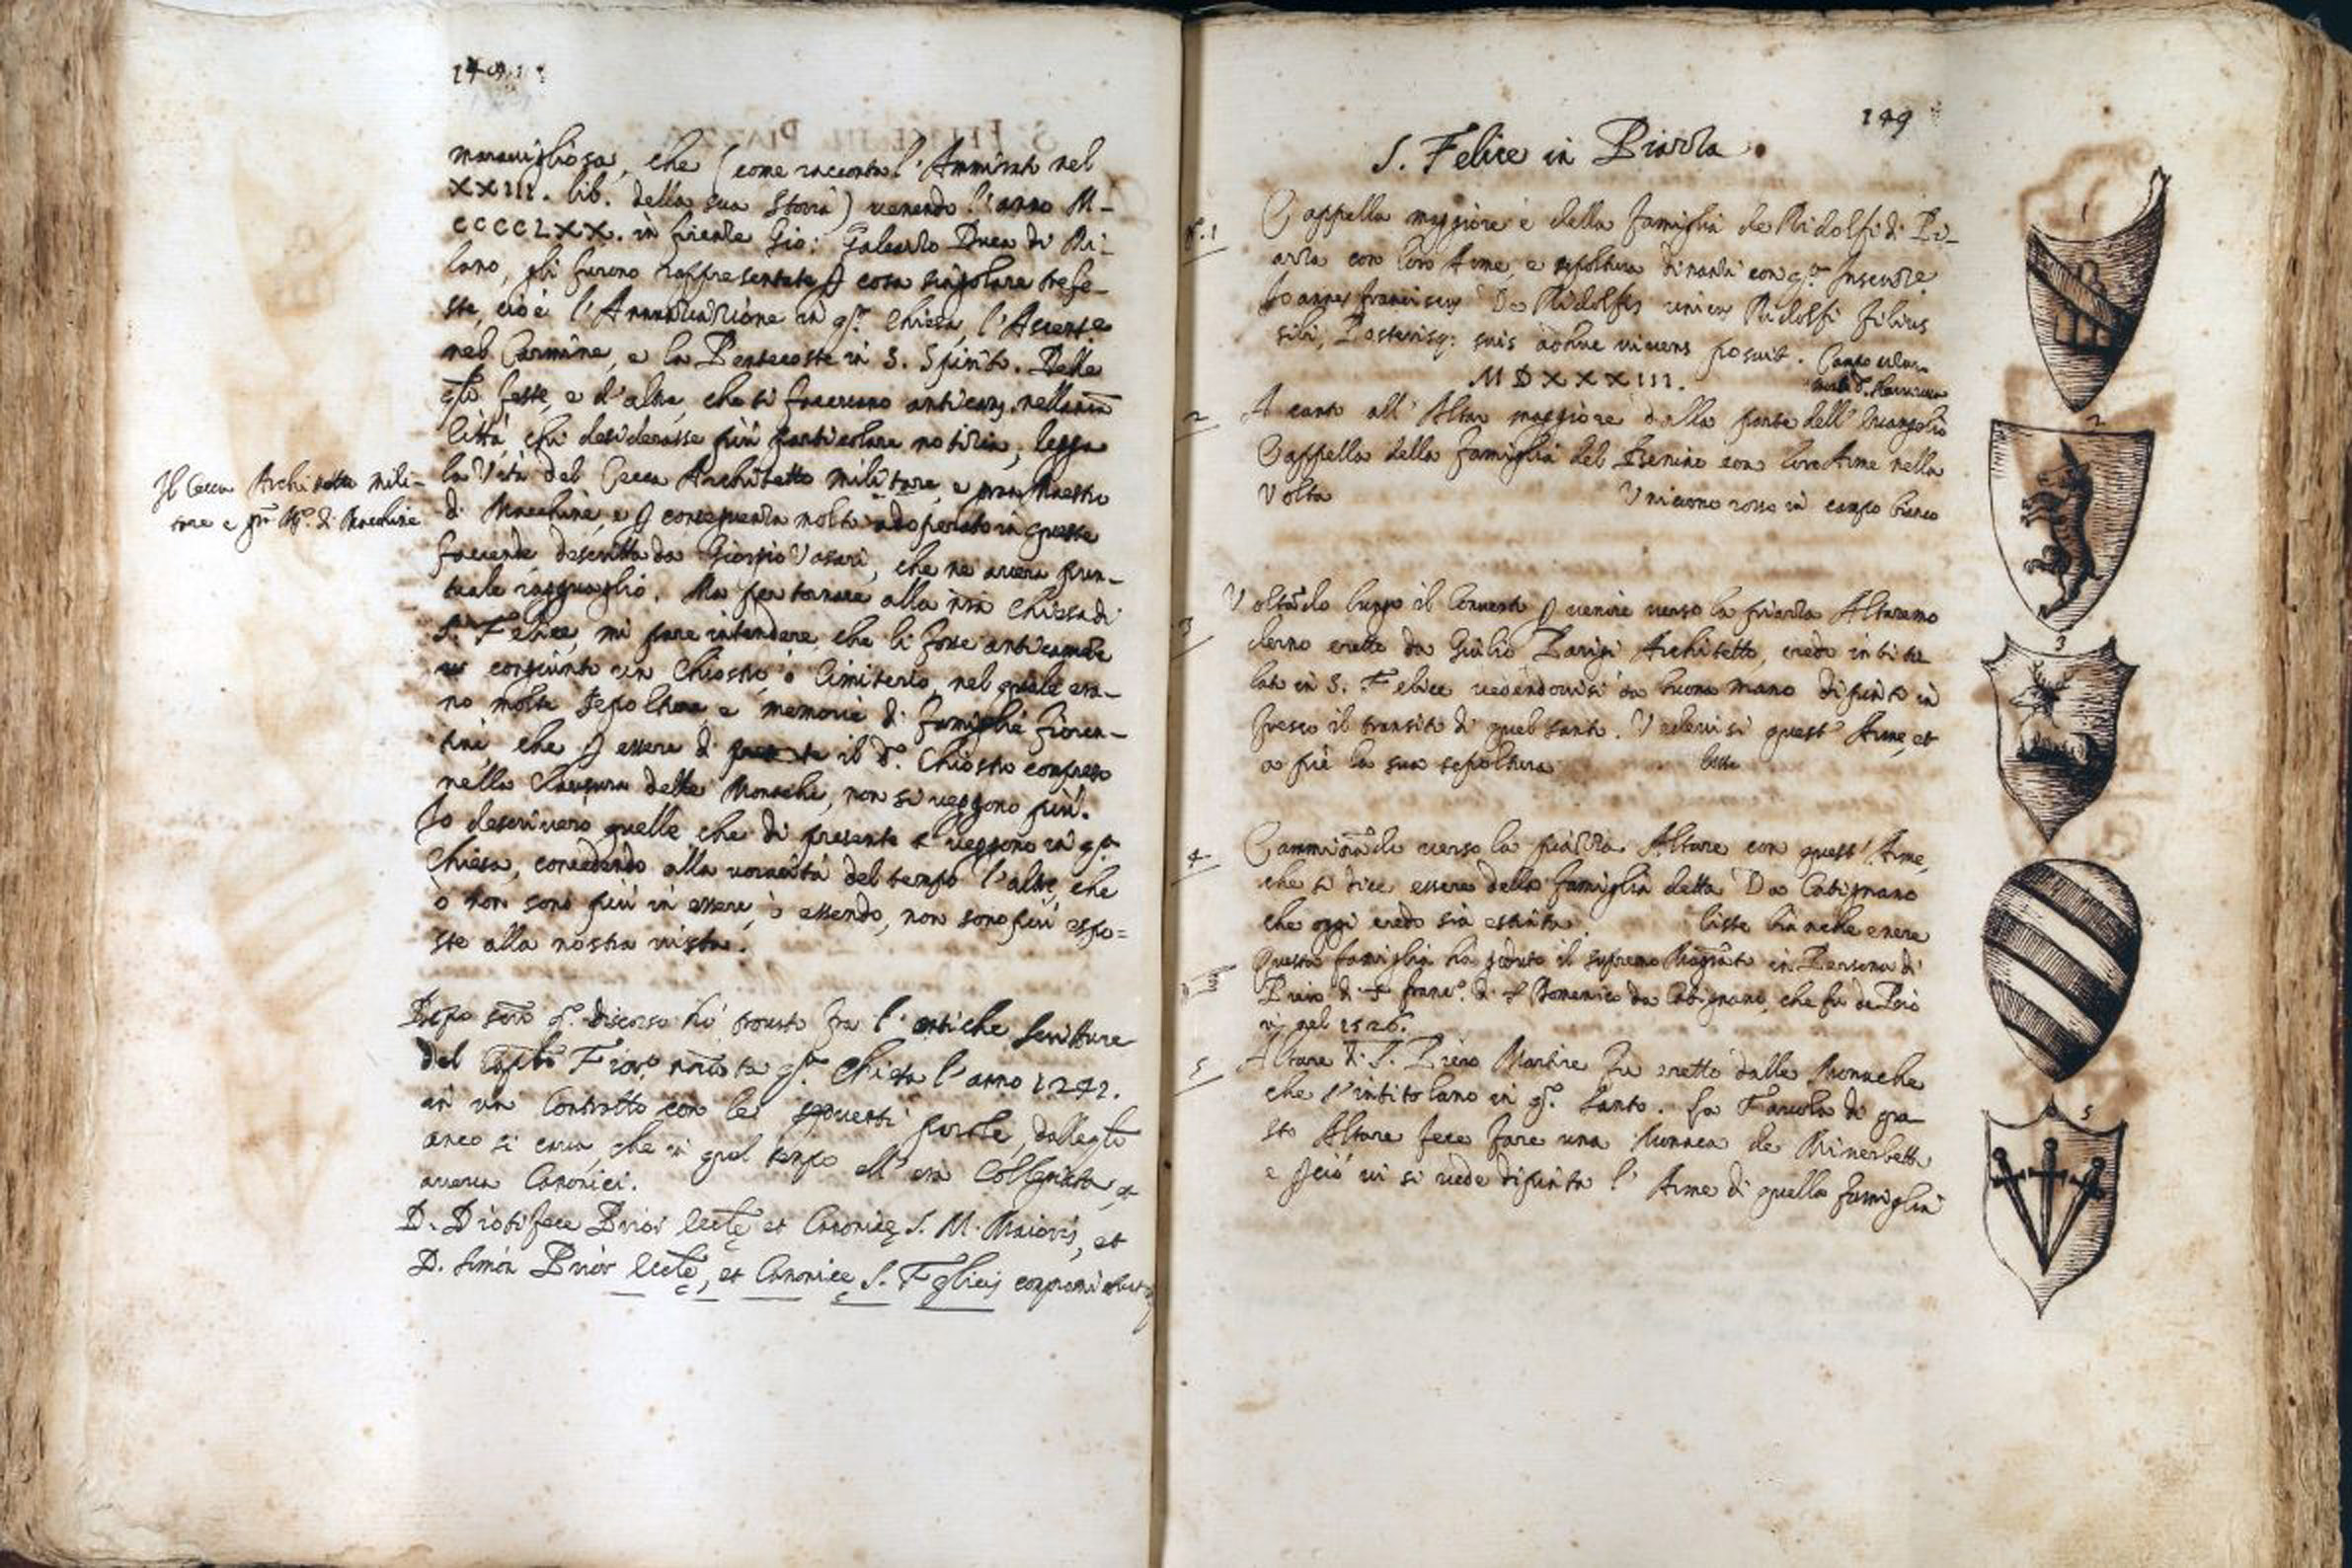 marauigliosa, che (come racconta l'Ammirato nel
XXIII. lib. della sua Storia) venendo l'anno M-
CCCCLXX. in firenze Gio: Galeazzo Duca di Mi-
lano, gli furono rappresentate cosa singolare tre fe-
ste, cioè l'Annunziazione in q.ta Chiesa, l'Ascens.e
nel Carmine, e la Pentecoste in S. Spirito. Delle
feste, e d'altre, che si faceuano nella
Città, chi desiderasse più particolare notizia, legga
la Vita del Cecca Architetto militare, e gran Maestro
Il Cecca Architetto mili-
tare e di Macchine
di Macchine, e consequenza molto adoperato in queste
faccende descritta da Giorgio Vasari, che ne arreca pun-
tuale ragguaglio. Ma per tornare alla Chiesa di
S. Felice, mi pare intendere, che li fosse anticamente
congiunto un Chiostro, ò Cimiterio, nel quale era-
no molte Sepolture, e memorie di famiglie fioren-
tine, che essere di il d.o Chiostro compreso
nella Clausura delle Monache, non si veggono più.
Io descriverò quelle che di presente si veggono in q.ta
Chiesa, concedendo alla voracità del tempo l'altre, che
ò non sono più in essere, ò essendo, non sono più espo=
ste alla nostra vista.
Dopo discorso hò trouato fra l'antiche Scritture
del Chiesa l'anno 1242.
in un Contratto con le parole, dalle
anco si caua, che in quel tempo ell'era Collegiata, e
aueua Canonici.
D. Diotifece Prior Canonice S. M. Maioris, et
D. Simon Prior et Canonice S. Felicis
149
S. Felice in Piazza
N.o 1
Cappella maggiore è della famiglia de Ridolfi di Pi-
azza con loro Arme, e sepoltura dinanzi con q.ta Inscrizz.e
Joannes franciscus De Ridolfis unicus Ridolfi filius
sibi, Posterisq: suis adhuc vivens posuit. Campo
MDXXXIII.
2
A canto all'Altar maggiore dalla parte dell'Euangelio
Cappella della famiglia del Benino con loro Arme nella
Volta Vnicorno rosso in campo bianco
3
Voltando lungo il Conuento venire verso la piazza Altare mo
derno eretto da Giulio Parigi Architetto, credo intito
lato in S. Felice vedendouisi da buona mano dipinto in
fresco il transito di quel Santo. Vedeuisi quest'Arme, et
a piè la sua sepoltura
4
Camminando verso la piazza Altare con quest'Arme,
che si dice essere della famiglia detta Da Catignano
che oggi credo sia estinta. liste bianche e nere
Questa famiglia ha goduto il supremo Magistrato in Persona di
Piero di franc.o di Domenico da Catignano, che fu de Prio
ri nel 1526.
5
Altare di S. Piero Martire fu eretto dalle Monache
che s'intitolano in q.to Santo. La Tauola di que
sto Altare fece fare una Monaca de Minerbetti
e ciò vi si uede dipinta l'Arme di quella famiglia
2
3
5